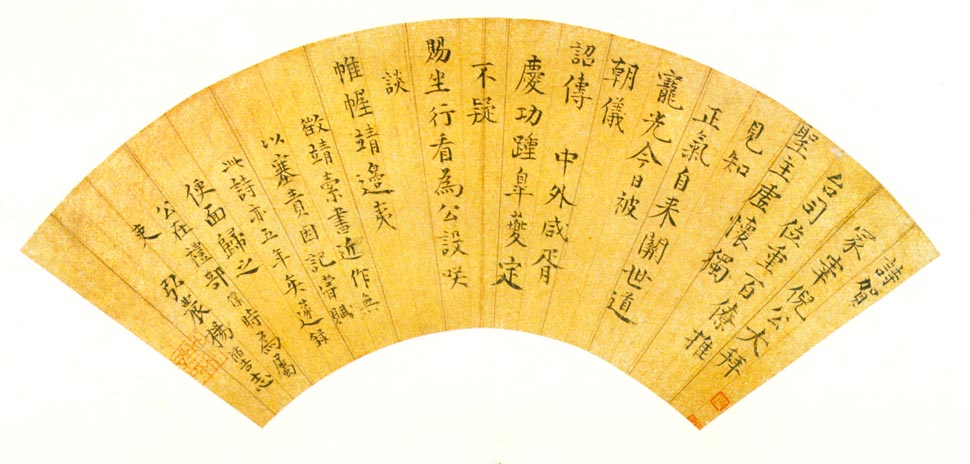 詩賀
冢宰倪公大拜
台司位重百僚推
聖主虛懷獨
見知
正氣自来關世道
寵光今日被
朝儀
詔傳
中外咸胥
慶功踵臯夔定
不疑
賜坐行看為公設咲
談
帷幄靖邊夷
徵靖索書近作無
以塞責因記嘗賦
此詩亦五年矣遂録
便面歸之
公在禮部僕時為屬
吏
弘農楊循吉志